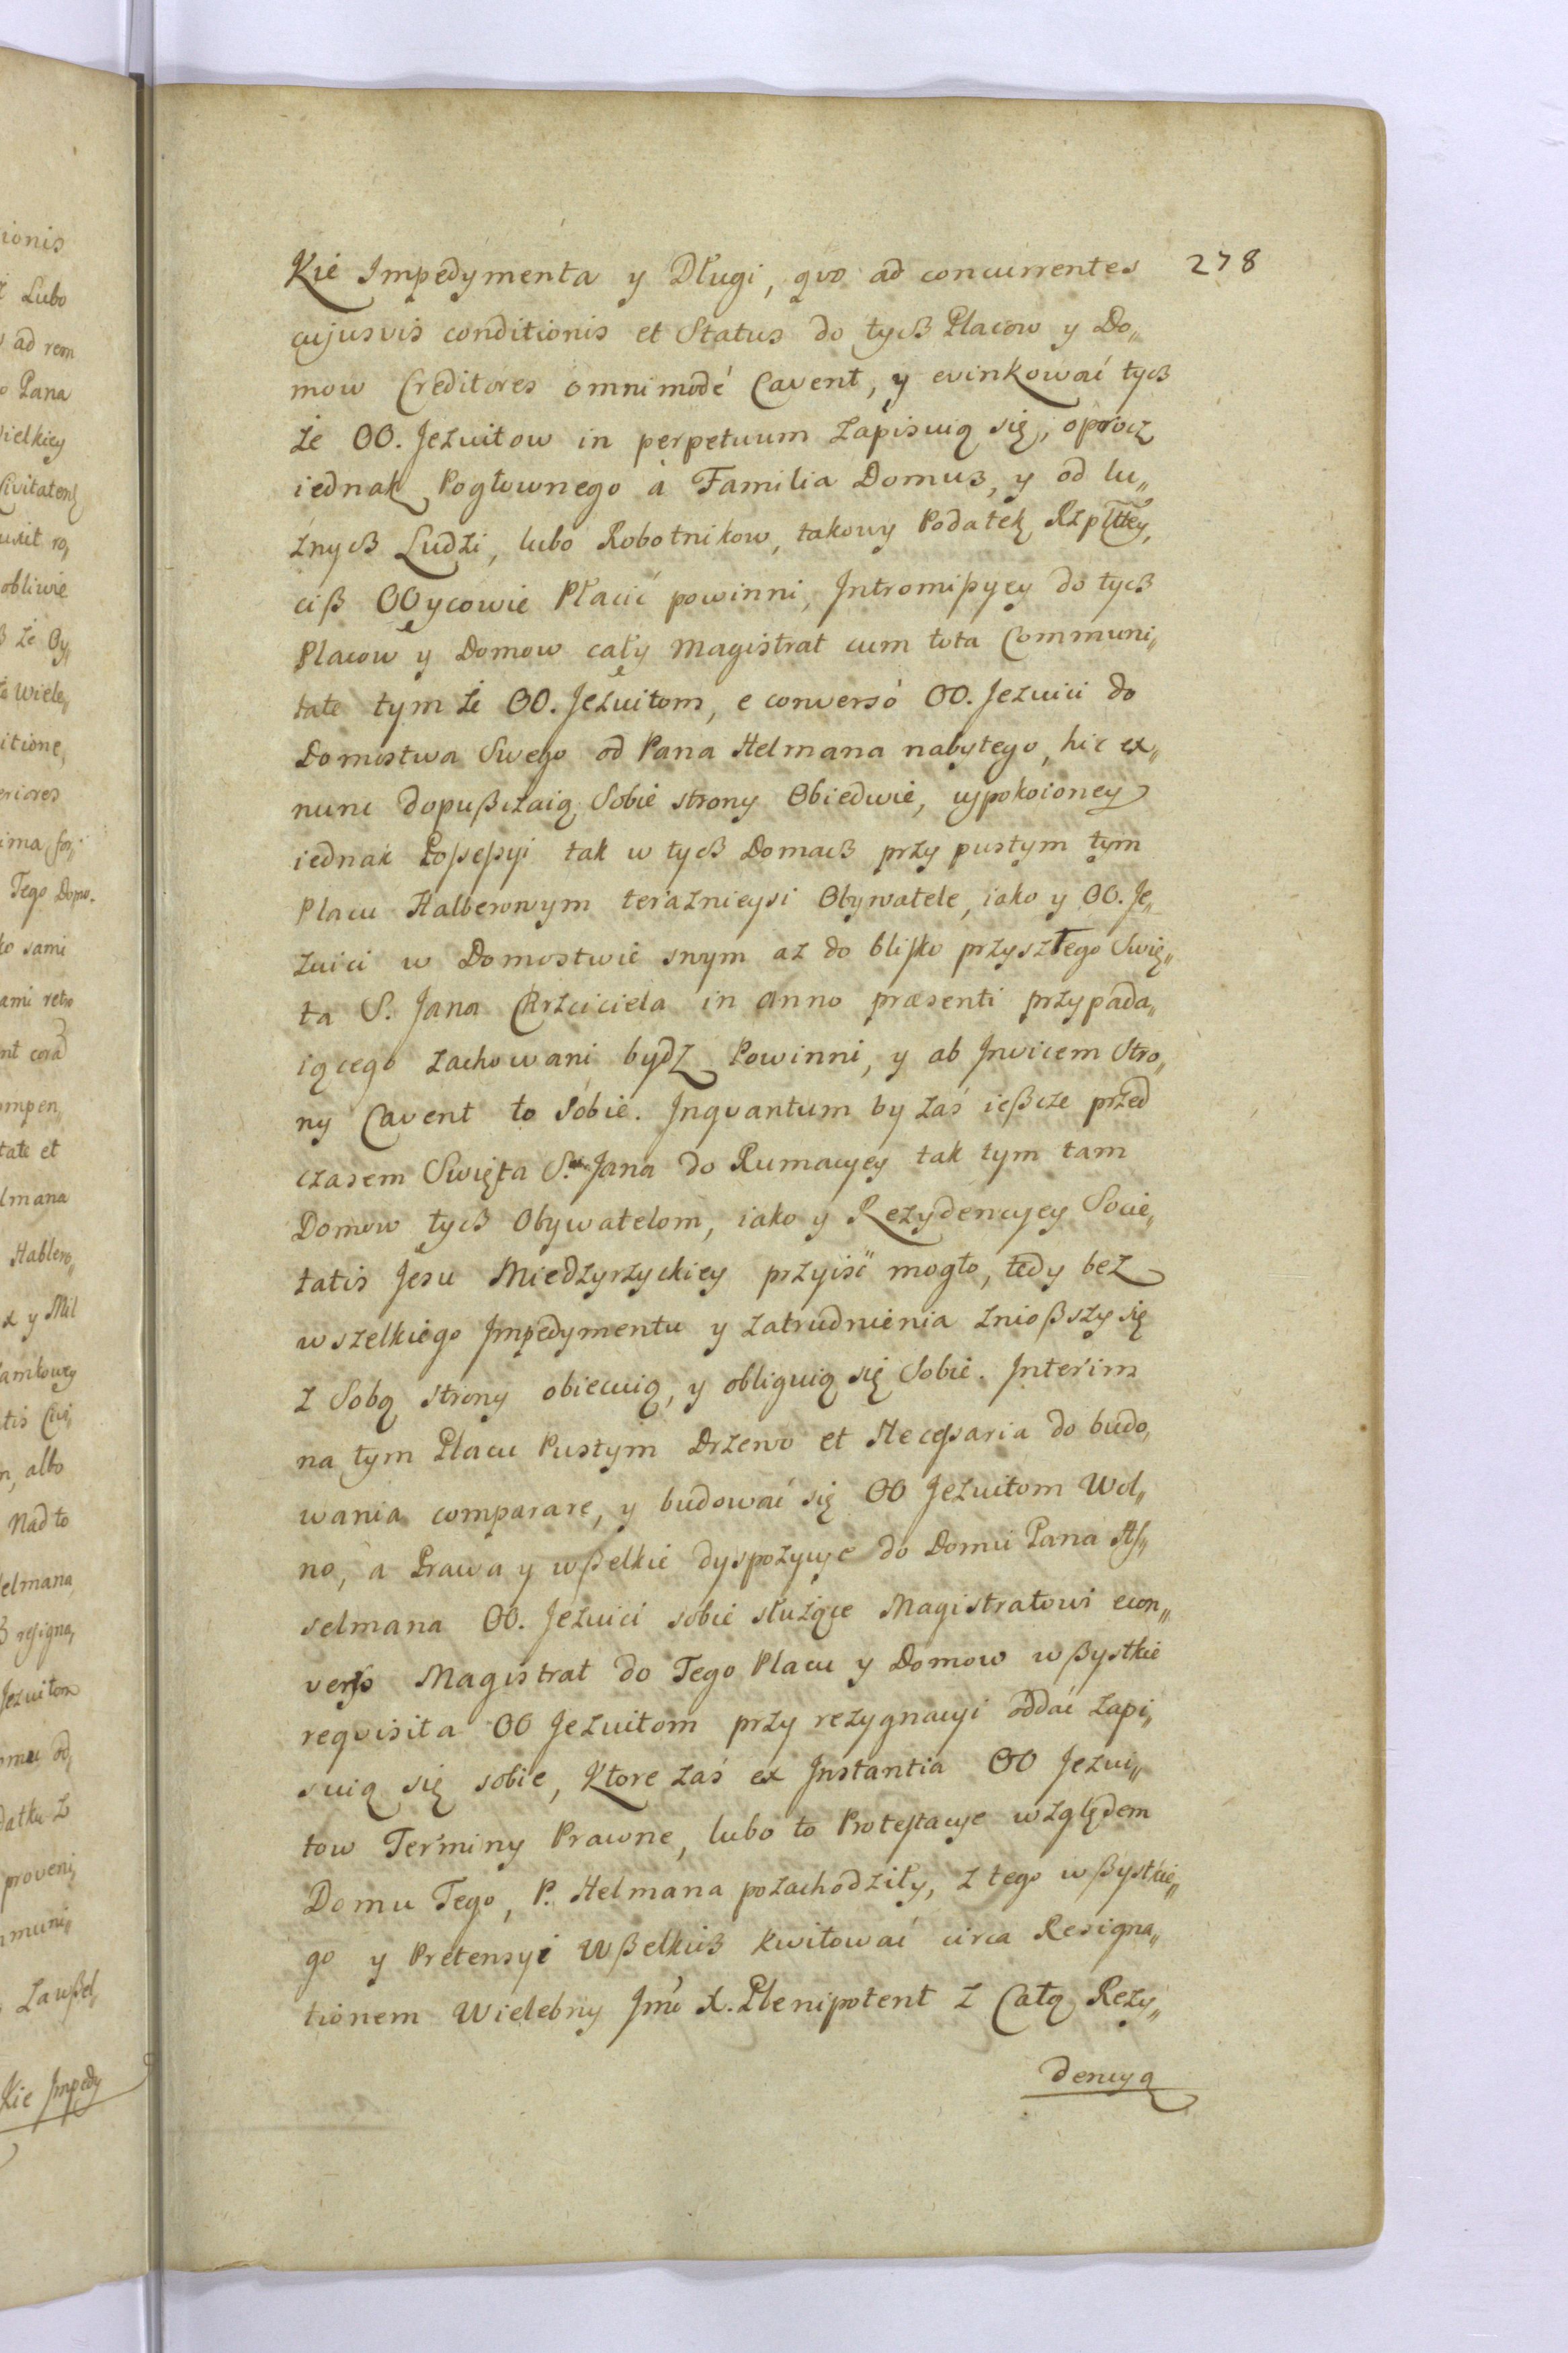 278
Kie Impedymenta y Długi, qvo ad concurrentes
cujusvis conditionis et Status do tych Placow y Do„
mow Creditores omnimode Cavent, y evinkowac tych
że OO. Jezuitow in perpetuum zapisuią się, oprocz
iednak Pogłownego a Familia Domus, y od lu„
źnych Ludzi, lubo Robotnikow, takowy Podatek Rzpltey,
ciß OOycowie Płacić powinni, Intromißyey do tych
Placow y Domow cały Magistrat cum tota Communi„
tate tym że OO. Jezuitom, e converso OO. Jezuici do
Domostwa Swego od Pana Helmana nabytego, hic ex„
nunc dopußczaią Sobie strony Obiedwie, uspokoioney
iednak Poßeßyi tak w tych Domach przy pustym tym
Placu Halberowym teraznieysi Obywatele, iako y OO. Je„
zuici w Domostwie swym az do blisko przyszłego Swię„
ta S. Jana Chrzciciela in anno præsenti przypada„
iącego zachowani bydz Powinni, y ab Invicem Stro„
ny Cavent to Sobie. Inqvantum by zaś ießcze przed
czasem Swięta S. Jana do Rumacyey tak tym tam
Domow tych Obywatelom, iako y Rezydencyey Socie„
tatis Jesu Miedzyrzyckiey przyiść mogło, tedy bez
wszelkiego Impedymentu y zatrudnienia znioßszy się
z Sobą strony obiecuią, y obliguią się Sobie. Interim
na tym Placu Pustym Drzewo et Neceßaria do budo„
wania comparare, y budować się OO Jezuitom Wol„
no, a Prawa y wßelkie dyspozycye do Domu Pana
selmana OO. Jezuici sobie służące Magistratowi econ„
verso Magistrat do Tego Placu y Domow wßystkie
reqvisita OO Jezuitom przy rezygnacyi oddać zapi„
suią się sobie, Ktore zaś ex Instantia OO Jezui„
tow Terminy Prawne, lubo to Protestacye względem
Domu Tego, P. Helmana pozachodziły, z tego wßystkie„
go y Pretensyi Wßelkich kwitować circa Resigna„
tionem Wielebny Jmć X. Plenipotent z Całą Rezy„
dencyą